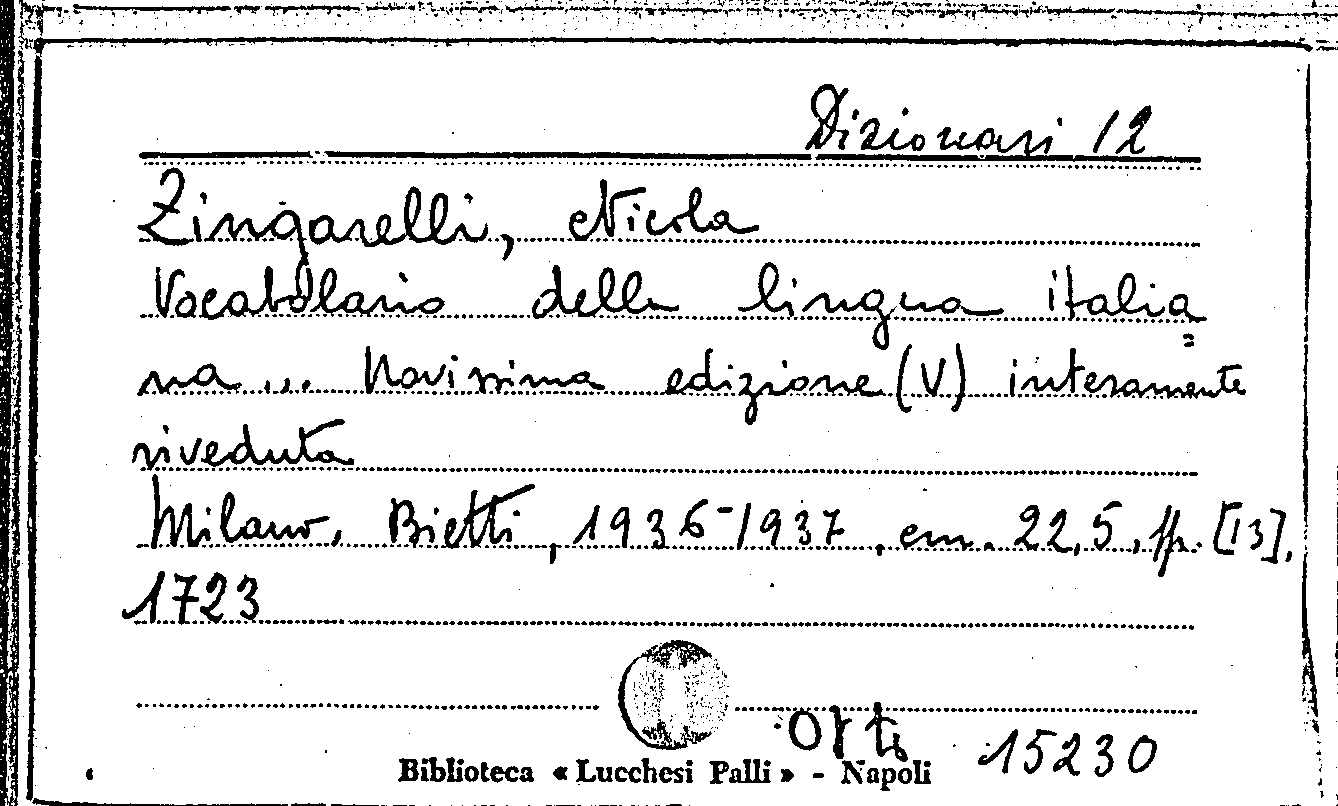 Dizionari 12
Zingarelli, Nicola
Vocabolario della lingua italia=
na ... Novissima edizione (V) interamente
riveduta
Milano, Bietti, 1936-1937, cm. 22,5, pp. [13],
1723
15230
Biblioteca « Lucchesi Palli » - Napoli